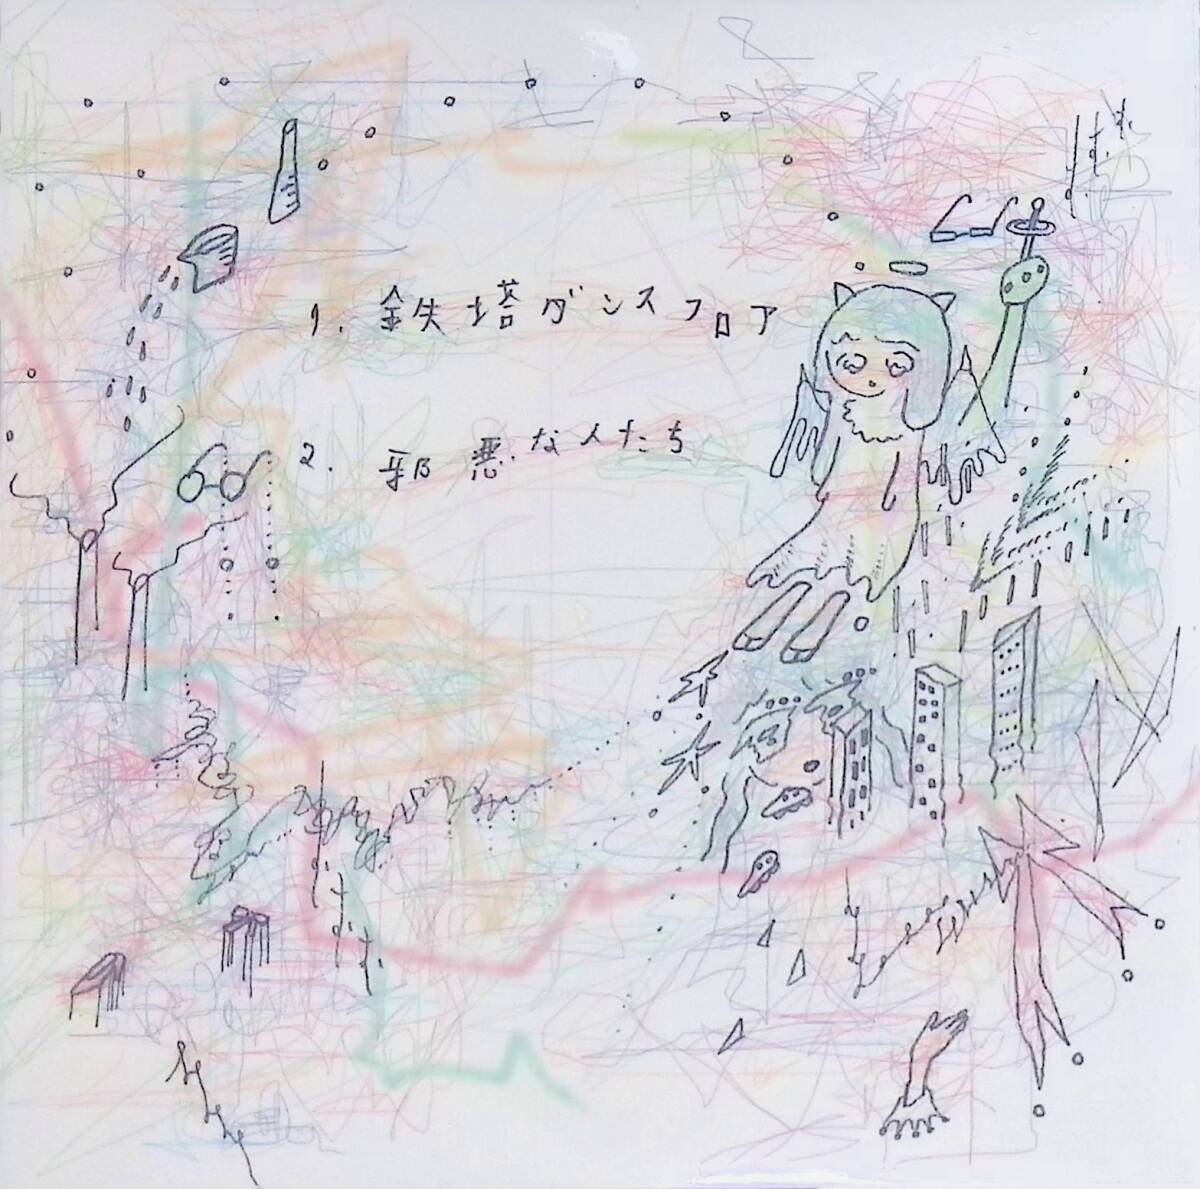 1. 鉄塔ダンスフロア
2. 邪悪な人たち